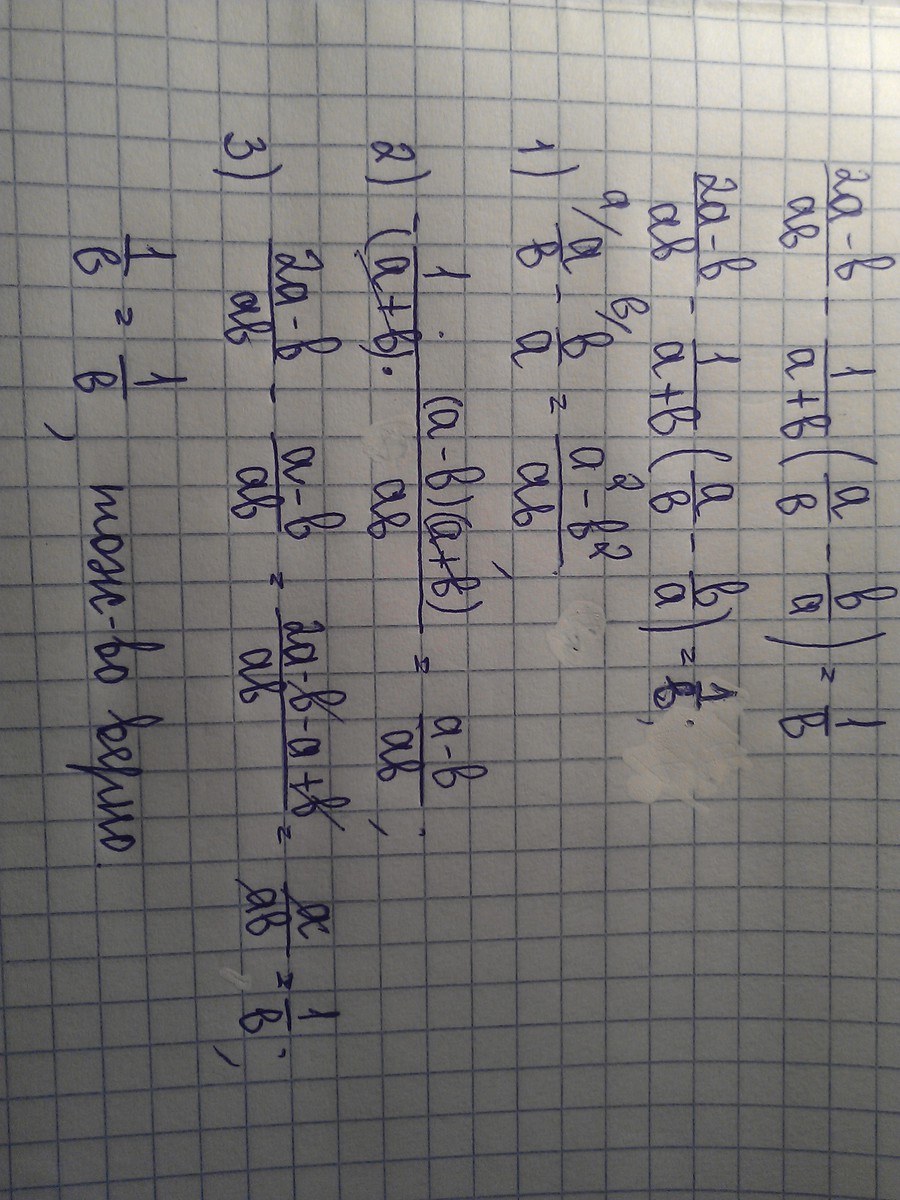 (2a-b)/(ab) - 1/(a+b) (a/b - b/a) = 1/b
(2a-b)/(ab) - 1/(a+b) (a/b - b/a) = 1/b;
1) a/ a/b - b/ b/a = (a² - b²)/(ab);
2) - 1/(a+b) · ((a-b)(a+b))/(ab) = (a-b)/(ab);
3) (2a-b)/(ab) - (a-b)/(ab) = (2a-b-a+b)/(ab) = a/(ab) = 1/b;
1/b = 1/b, тож-во верно.